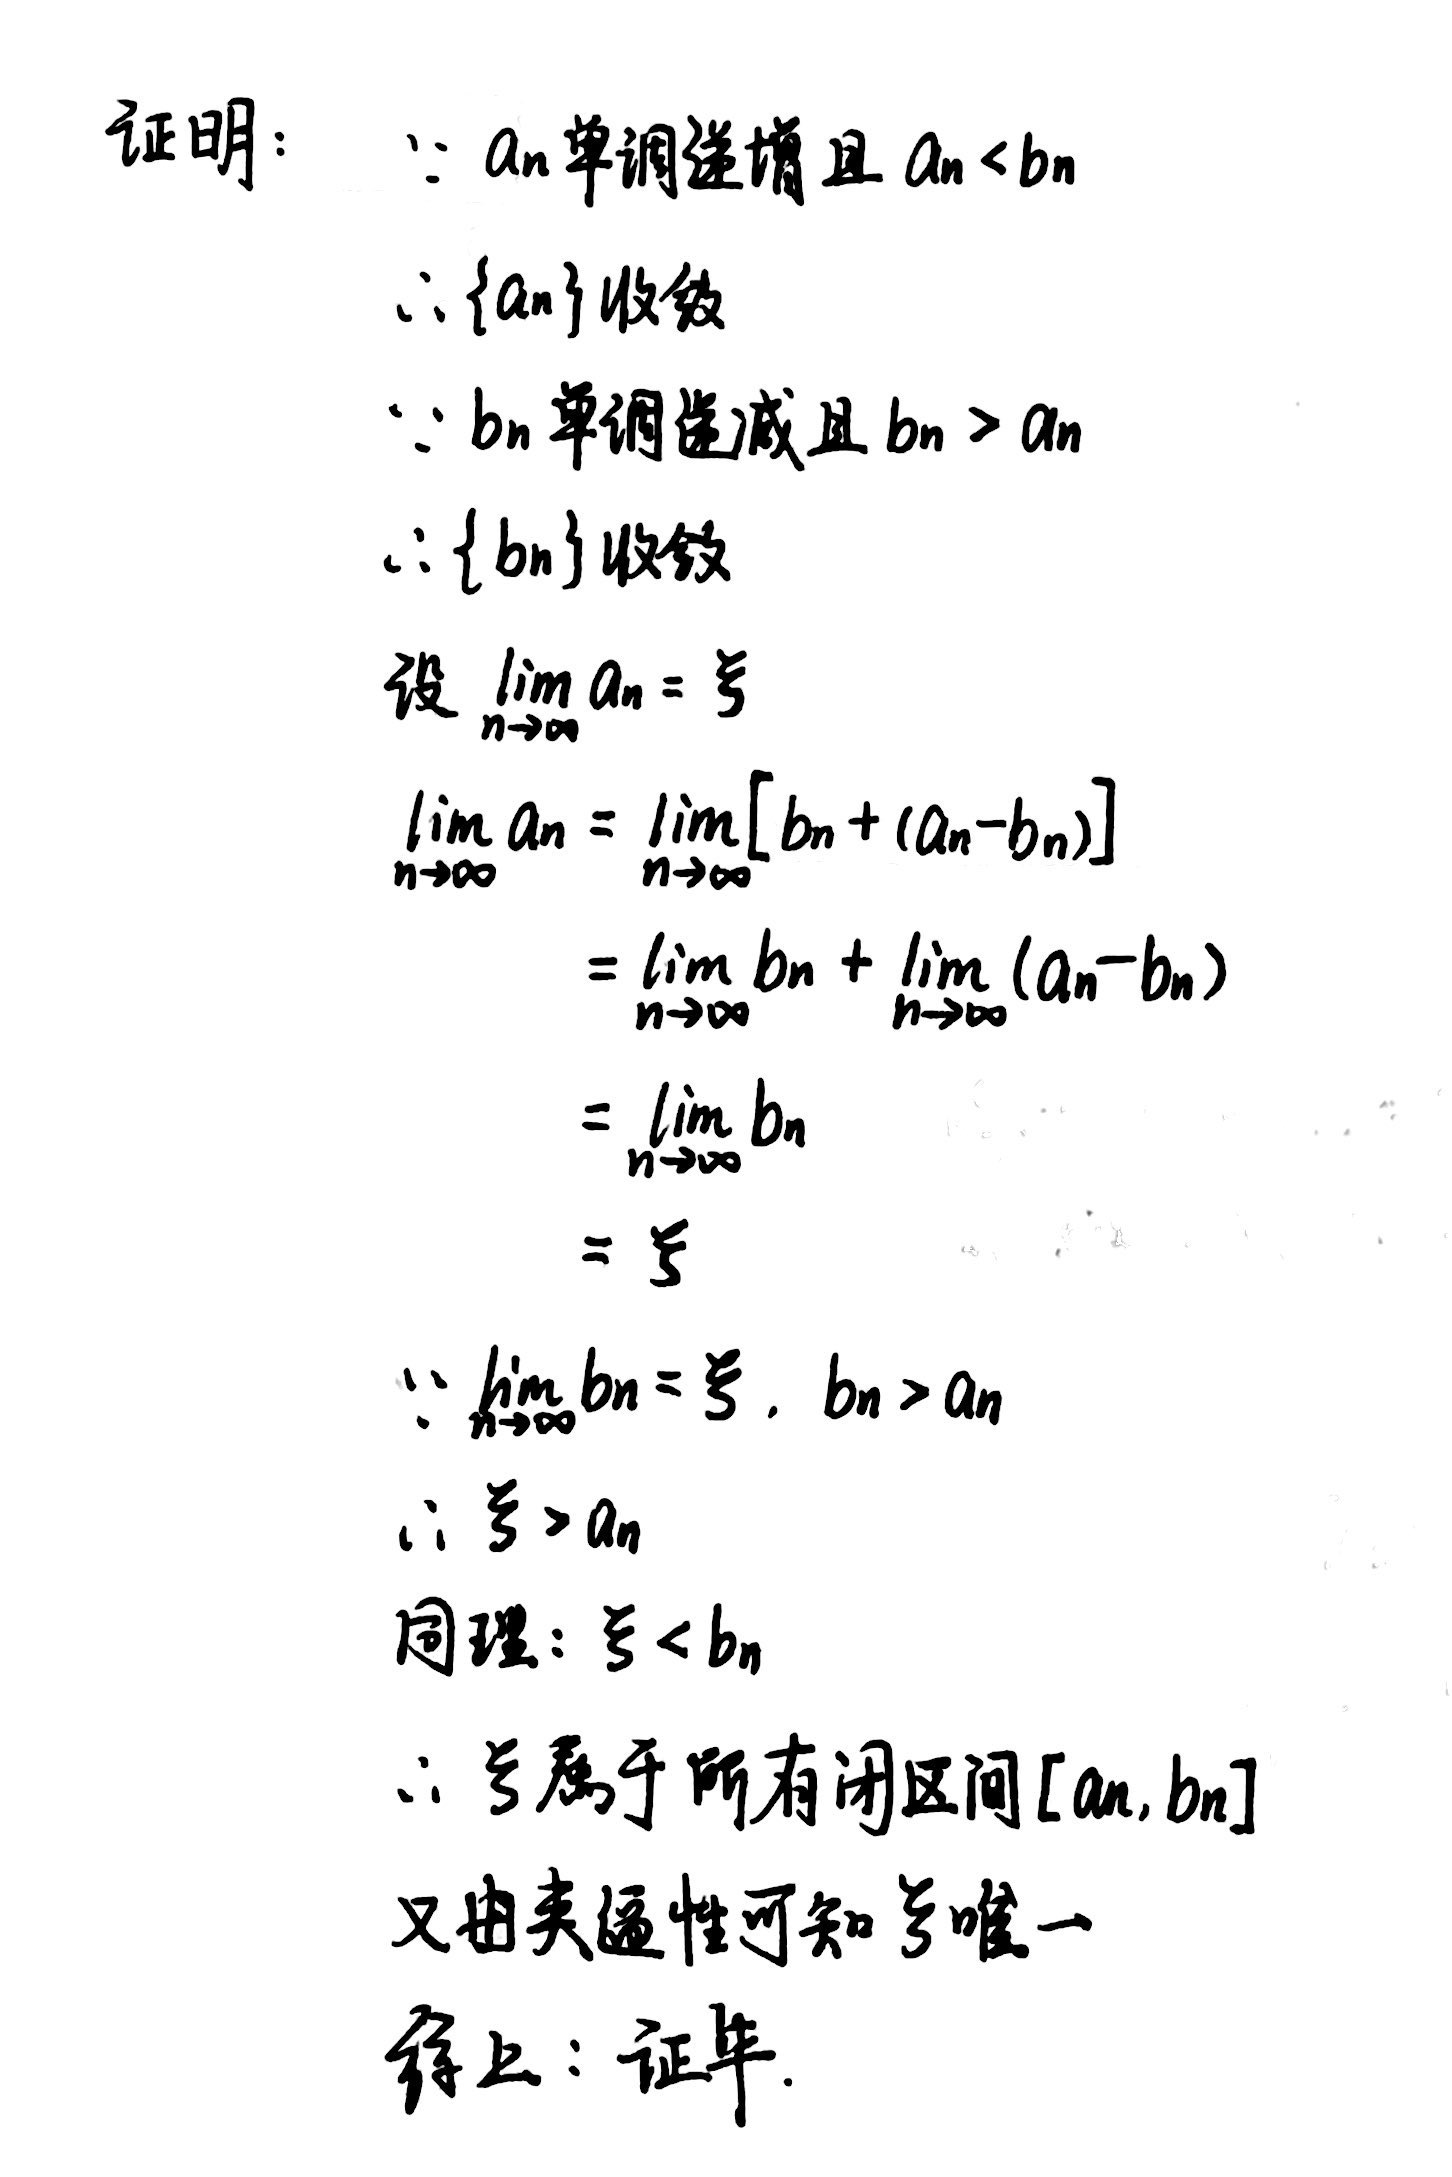 证明: ∵ an单调递增且 an<bn
∴{an}收敛
∵ bn单调递减且bn>an
∴{bn}收敛
设 lim n→∞ an=ξ
lim n→∞ an = lim n→∞ [bn+(an-bn)]
= lim n→∞ bn + lim n→∞ (an-bn)
= lim n→∞ bn
= ξ
∵ lim n→∞ bn=ξ. bn>an
∴ ξ>an
同理: ξ<bn
∴ ξ属于所有闭区间[an,bn]
又由夹逼性可知ξ唯一
综上: 证毕.